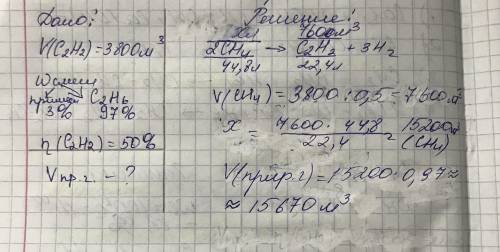 Дано:
V(C₂H₂)=3800м³
W смеси
примеси C₂H₆
3% 97%
η(C₂H₂)=50%
Vпр.г. – ?
Решение:
xл 7600м³
2CH₄ → C₂H₂ + 3H₂
44,8л 22,4л
V(CH₄)=3800:0,5=7600м³
x = 7600·44,8 / 22,4 = 15200м³ (CH₄)
V(прир.г)=15200:0,97≈
≈15670м³